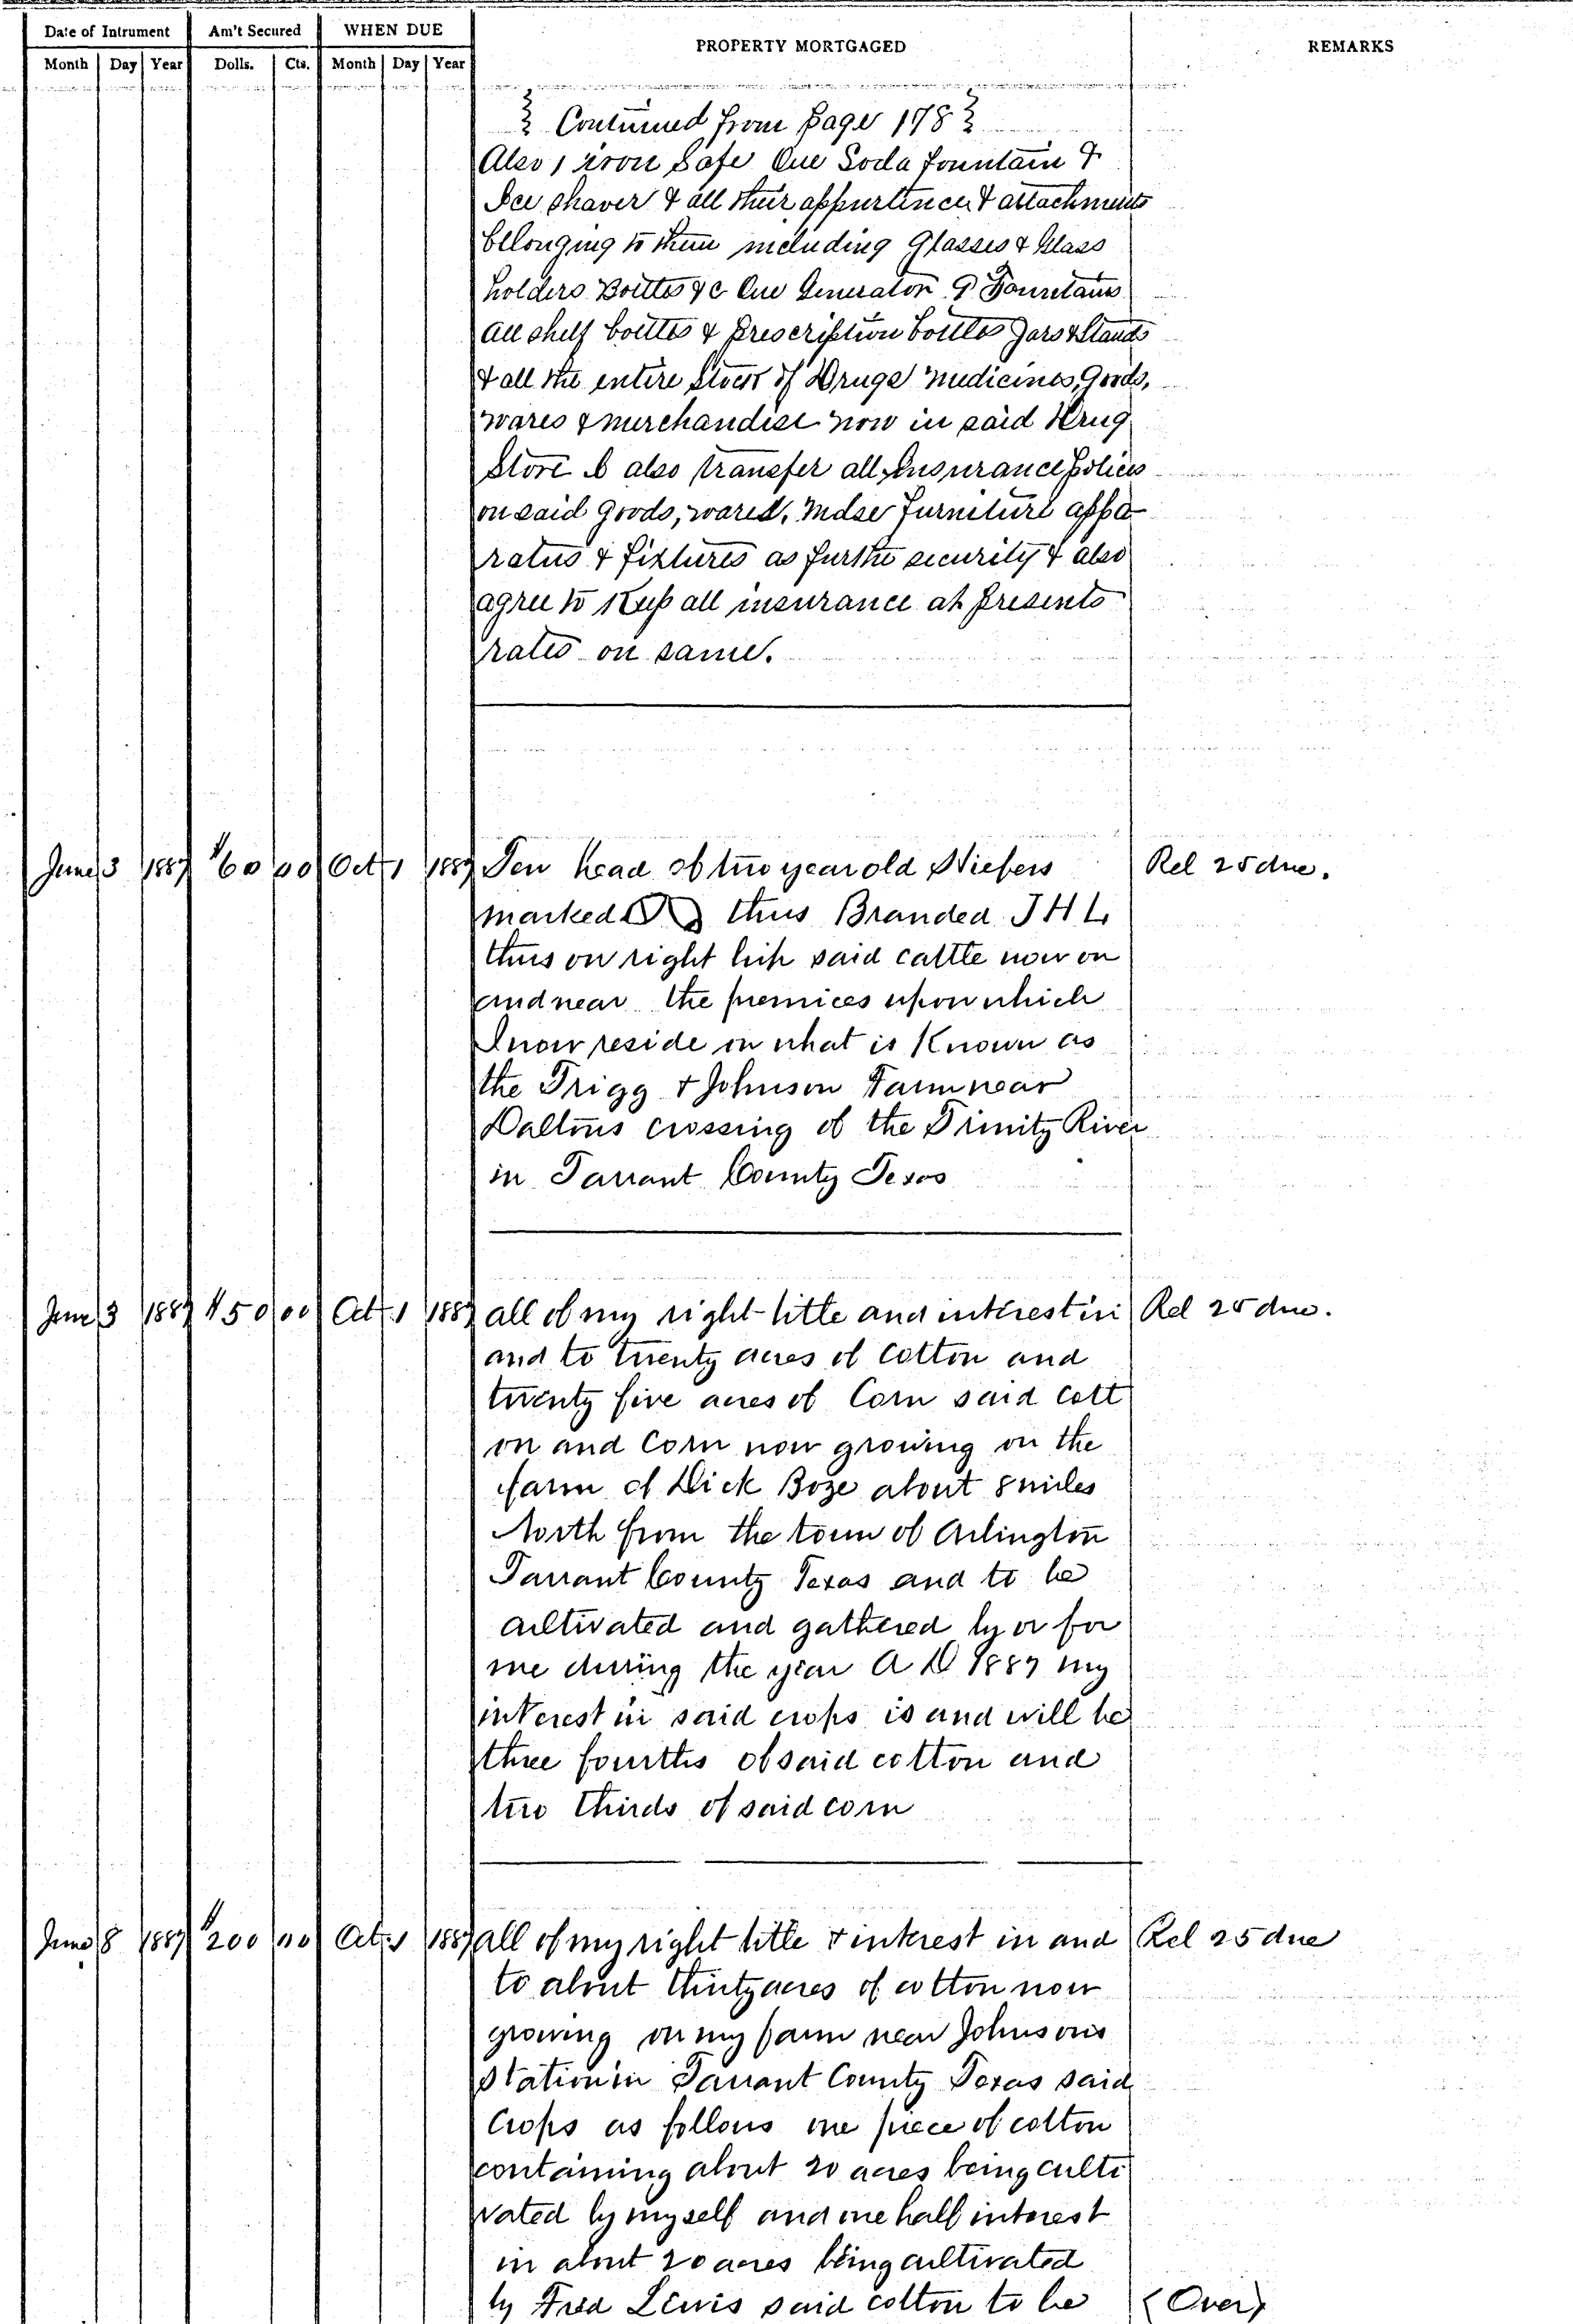 Date of Intrument Am't Secured WHEN DUE PROPERTY MORTGAGED REMARKS
Month Day Year Dolls. Cts. Month Day Year
Continued from Page 178
Also 1 iron Safe One Soda fountain &
Ice shaver & all their appurtinces & attachments
belonging to them including Glasses & Glass
holders Bottles &c One Generator 9 Fountains
all shelf bottles & Prescription bottles Jars & Stands
& all the entire Stock of Drugs medicines, Goods,
wares & merchandise now in said Drug
Store & also transfer all Insurance Policies
on said goods, wares, Mdse furniture appa
ratus & fixtures as further security & also
agree to Keep all insurance at presents
rates on same.
June 3 1887 $60 00 Oct 1 1887 Ten head of two year old Hiefers Rel 25 due.
marked thus Branded J H L
thus on right hip said cattle now on
and near the premices upon which
I now reside on what is Known as
the Trigg & Johnson Farm near
Daltons crossing of the Trinity River
in Tarrant County Texas
June 3 1887 $50 00 Oct 1 1887 all of my right title and interest in Rel 25 due.
and to twenty acres of cotton and
twenty five acres of Corn said cott
on and Corn now growing on the
farm of Dick Boze about 8 miles
North from the town of Arlington
Tarrant County Texas and to be
cultivated and gathered by or for
me during the year A D 1887 my
interest in said crops is and will be
three fourths of said cotton and
two thirds of said corn
June 8 1887 $200 00 Oct 1 1887 all of my right title & interest in and Rel 25 due
to about thirty acres of cotton now
growing on my farm near Johnsons
Station in Tarrant County Texas said
Crops as follows one piece of cotton
containing about 20 acres being culti
vated by myself and one half interest
in about 20 acres being cultivated
by Fred Lewis said cotton to be (Over)